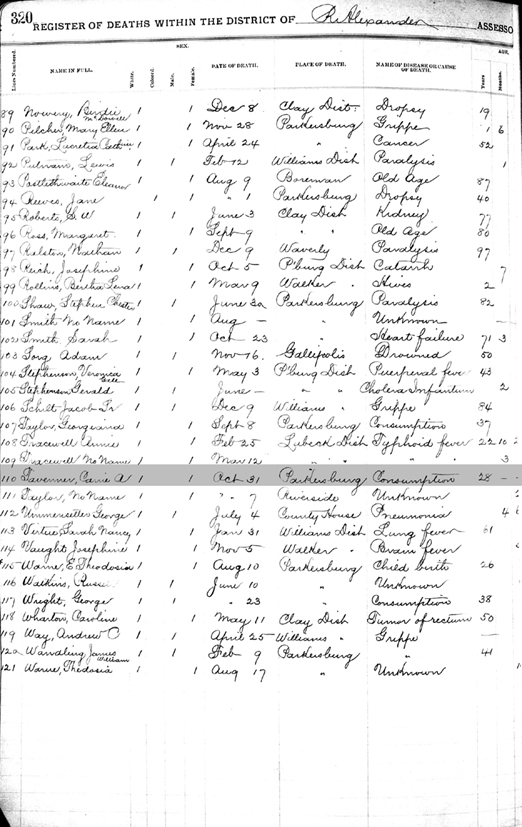 320 REGISTER OF DEATHS WITHIN THE DISTRICT OF R. Alexander ASSESSO
SEX. AGE.
Lines Numbered. NAME IN FULL. White. Colored. Male. Female. DATE OF DEATH. PLACE OF DEATH. NAME OF DISEASE OR CAUSE OF DEATH. Years Months.
89 Nowery, Birdie 1 1 Dec 8 Clay Dist. Dropsy 19
90 Pilcher, Mary Ellen 1 1 Nov 28 Parkersburg Grippe 1 6
91 Park, Lucretia 1 1 April 24 " Cancer 52
92 Putnam, Lewis 1 1 Feb 12 Williams Dist Paralysis 1
93 Postlethwaite Eleanor 1 1 Aug 9 Boreman Old Age 87
94 Reeves, Jane 1 1 " 1 Parkersburg Dropsy 40
95 Roberts, G W 1 1 June 3 Clay Dist Kidney 77
96 Ross, Margaret 1 1 Sept 9 " " Old Age 80
97 Ralston, Nathan 1 1 Dec 9 Waverly Paralysis 97
98 Josephine 1 1 Oct 5 P'burg Dist Catarrh 7
99 Rollins, Bertha 1 1 Mar 9 Walker " Hives 2
100 Shaw, Stephen Chester 1 1 June 30 Parkersburg Paralysis 82
101 Smith No Name 1 Aug — " Unknown —
102 Smith Sarah 1 1 Oct 23 " Heart failure 71 3
103 Song, Adam 1 1 Nov 16. Gallipolis Drowned 50
104 Stephenson, Veronica Bell 1 1 May 3 P'burg Dist Puerperal fever 43
105 Stephenson, Gerald 1 1 June — " " Cholera Infantum 2
106 Jacob Sr 1 1 Dec 9 Williams " Grippe 84
107 Taylor, Georgiana 1 1 Sept 8 Parkersburg Consumption 37
108 Tracewell Annie 1 1 Feb 25 Lubeck Dist Typhoid fever 22 10 2
109 Tracewell No Name 1 1 Mar 12 " " 3
110 Tavenner, Carrie A 1 1 Oct 31 Parkersburg Consumption 28 — —
111 Taylor, No Name 1 1 " " 7 Riverside Unknown
112 George 1 1 July 4 County House Pneumonia 4
113 Virtue, Sarah Nancy 1 1 Jan 31 Williams Dist Lung fever 61
114 Vaught Josephine 1 1 Nov 5 Walker " Brain fever
115 Warne, E Theodosia 1 1 Aug 10 Parkersburg Child birth 26
116 Watkins, 1 1 June 10 " Unknown
117 Wright, George 1 1 " 23 " Consumption 38
118 Wharton, Caroline 1 1 May 11 Clay Dist Tumor of rectum 50
119 Way, Andrew C 1 1 April 25 Williams " Grippe —
120 Wandling James William 1 1 Feb 9 Parkersburg " 41
121 Warne, Thedosia 1 1 Aug 17 " Unknown